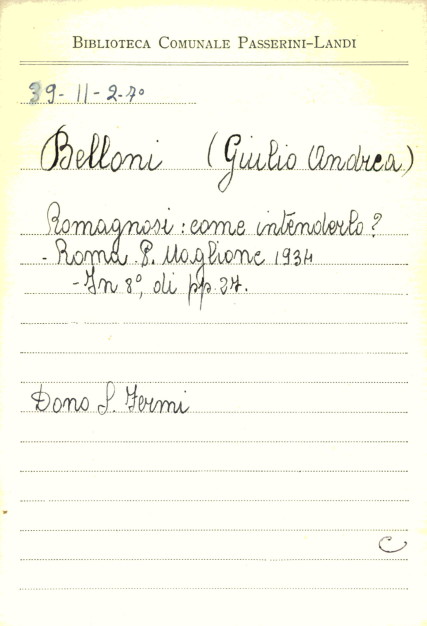 BIBLIOTECA COMUNALE PASSERINI-LANDI
39-11-2-7º
Belloni (Giulio Andrea)
Romagnosi: come intenderlo?
- Roma. P. Maglione 1934
- In 8º, di pp. 27.
Dono S. Fermi
C